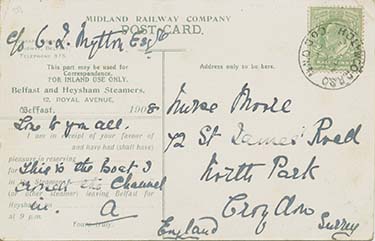 MIDLAND RAILWAY COMPANY
POST CARD.
c/o C. F. Mytton Esqre
This part may be used for
Correspondence.
FOR INLAND USE ONLY.
Address only to be here.
Belfast and Heysham Steamers.
12, ROYAL AVENUE,
Belfast. 1908
Love to you all.
I am in receipt of your favour of
and have had (shall have)
pleasure in reserving
This is the Boat I
crossed the Channel
(or other steamer) leaving Belfast for
Heysham on
in. A
at 9 p.m.
Yours truly,
Nurse Moore
72 St James' Road
North Park
Croydon
England Surrey